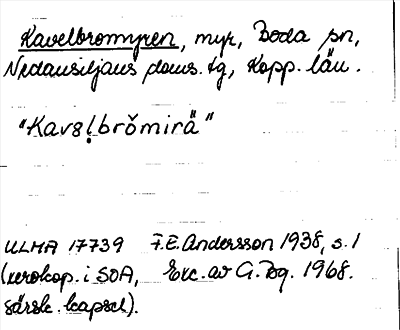 Kavelbromyren, myr, Boda sn,
Nedansiljans doms. tg, Kopp. län.
"Kavəḷbrŏmirä"
ULMA 17739 F.E. Andersson 1938, s. 1
(xerokop. i SOA, Exc. av G. Bg. 1968.
särsk. kapsel).